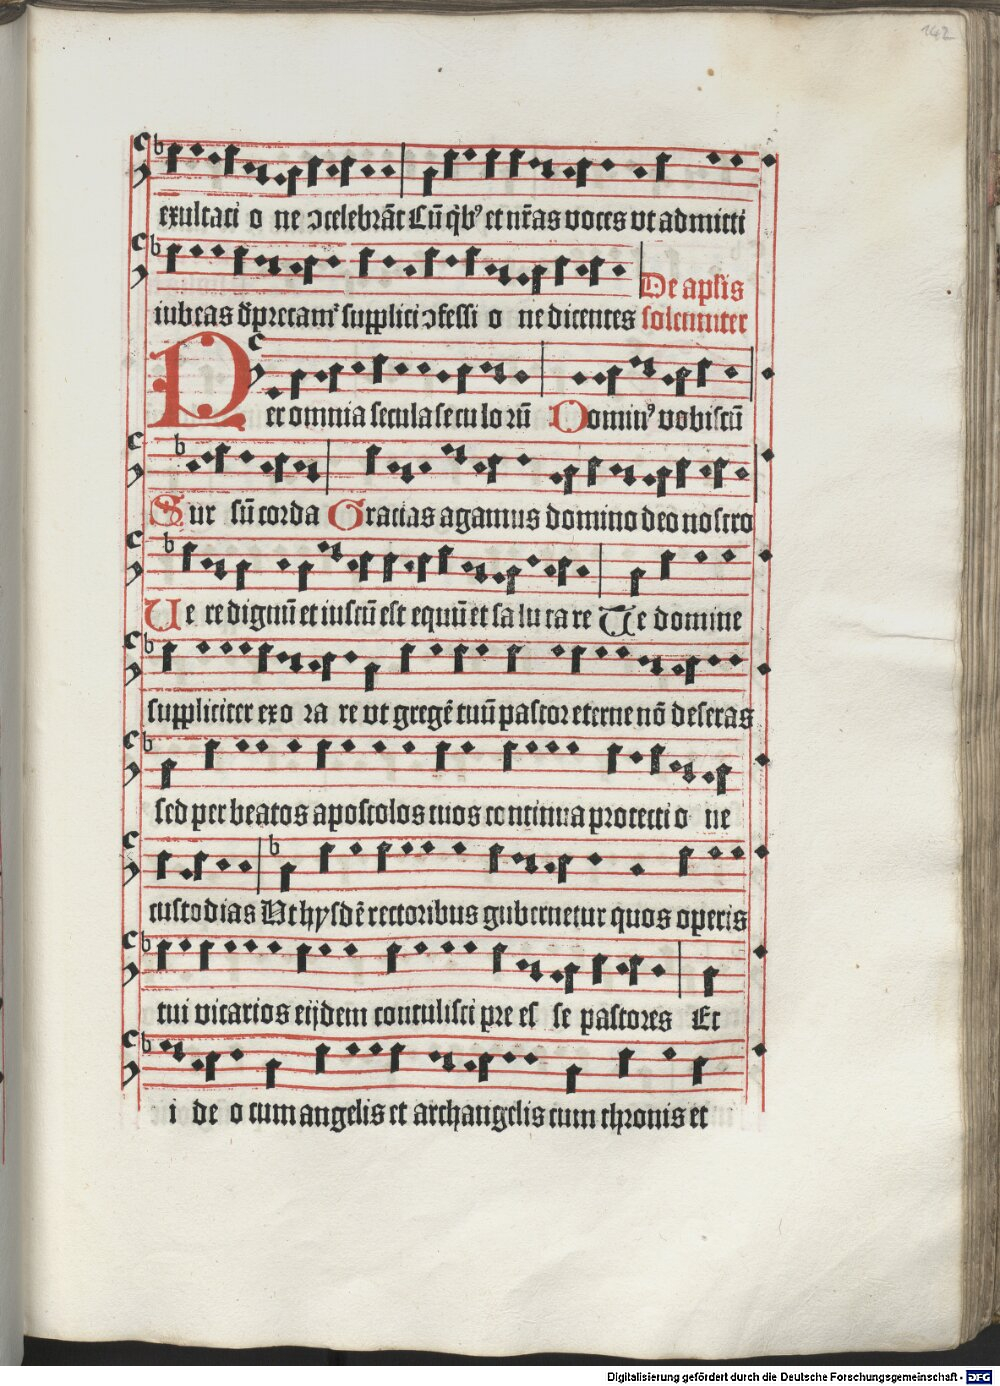 142
exultaci o ne ɔcelebrāt Cū q̇bꝰ et nr̄as voces vt admitti
iubeas dp̄recamᷣ supplici ɔfessi o ne dicentes De apl̄is
solenniter
Per omnia secula seculorū Dominꝰ vobiscū
Sur sū corda Gracias agamus domino deo nostro
Ue re dignū et iustū est equū et sa lu ta re Te domine
suppliciter exo ra re vt gregē tuū pastor eterne nō deseras
sed per beatos apostolos tuos continua protecti o ne
custodias Ut hysdē rectoribus gubernetur quos operis
tui vicarios eijdem contulisti pre es se pastores Et
i de o cum angelis et archangelis cum thronis et
Digitalisierung gefördert durch die Deutsche Forschungsgemeinschaft - DFG